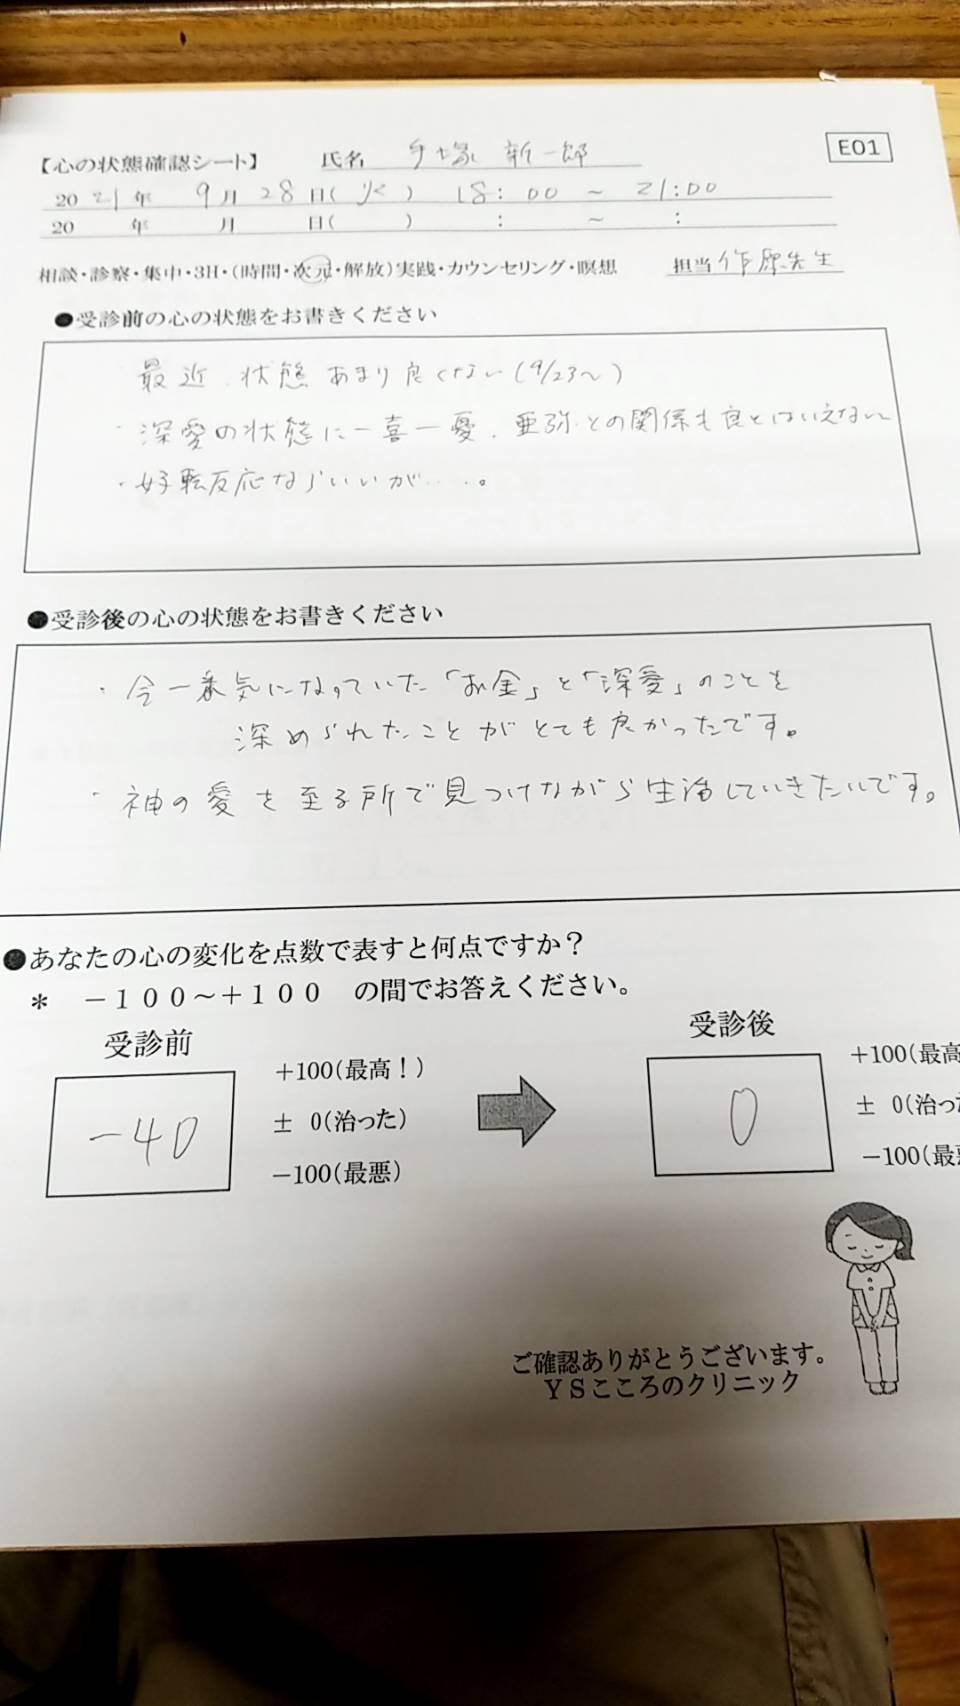 E01
【心の状態確認シート】 氏名 手塚 新一郎
2021年 9月 28日(火) 18:00 ~ 21:00
20 年 月 日( ) : ~ :
相談・診察・集中・3H・(時間・次元・解放)実践・カウンセリング・瞑想 担当 作原先生
●受診前の心の状態をお書きください
最近、状態あまり良くない(9/23~)
・深愛の状態に一喜一憂、亜弥との関係も良とはいえない
・好転反応ならいいが・・・。
●受診後の心の状態をお書きください
・今一番気になっていた「お金」と「深愛」のことを
深められたことがとても良かったです。
・神の愛を至る所で見つけながら生活していきたいです。
●あなたの心の変化を点数で表すと何点ですか?
* -100~+100 の間でお答えください。
受診前 受診後
+100(最高!) +100(最高
-40 ± 0(治った) 0 ± 0(治っ
-100(最悪) -100(最
ご確認ありがとうございます。
YSこころのクリニック